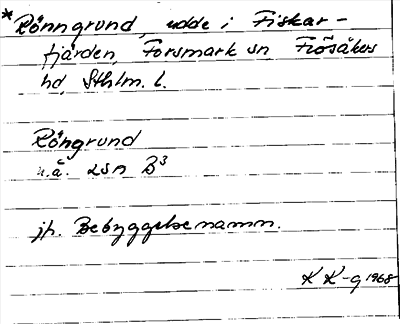 *Rönngrund, udde i Fiskar-
fjärden, Forsmark sn, Frösåkers
hd, Sthlm. l.
Röngrund
u.å. LSA B³
jfr. Bebyggelsenamn.
KK-g 1968